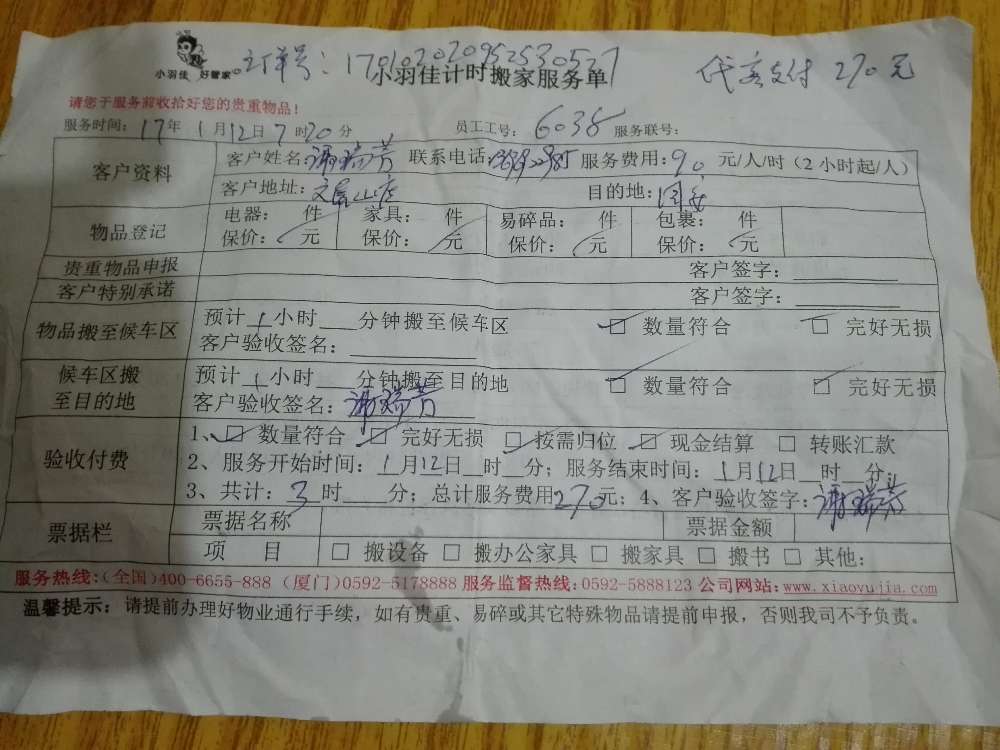 订单号：170102020952530527
代客支付 270元
小羽佳 好管家
小羽佳计时搬家服务单
请您于服务前收拾好您的贵重物品！
服务时间：17年1月12日7时20分 员工工号：6038 服务联号：
客户资料 客户姓名：谢瑞芳 联系电话： 服务费用：90元/人/时（2小时起/人）
客户地址： 目的地：
物品登记 电器： 件 家具： 件 易碎品： 件 包裹： 件
保价： 元 保价： 元 保价： 元 保价： 元
贵重物品申报 客户签字：
客户特别承诺 客户签字：
物品搬至候车区 预计1小时 分钟搬至候车区 数量符合 完好无损
客户验收签名：
候车区搬至目的地 预计1小时 分钟搬至目的地 数量符合 完好无损
客户验收签名：谢瑞芳
验收付费 1、数量符合 完好无损 按需归位 现金结算 转账汇款
2、服务开始时间：1月12日 时 分；服务结束时间：1月12日 时 分；
3、共计：3时 分；总计服务费用270元；4、客户验收签字：谢瑞芳
票据栏 票据名称 票据金额
项 目 搬设备 搬办公家具 搬家具 搬书 其他：
服务热线：（全国）400-6655-888（厦门）0592-5178888 服务监督热线：0592-5888123 公司网站：www.xiaoyujia.com
温馨提示：请提前办理好物业通行手续，如有贵重、易碎或其它特殊物品请提前申报，否则我司不予负责。